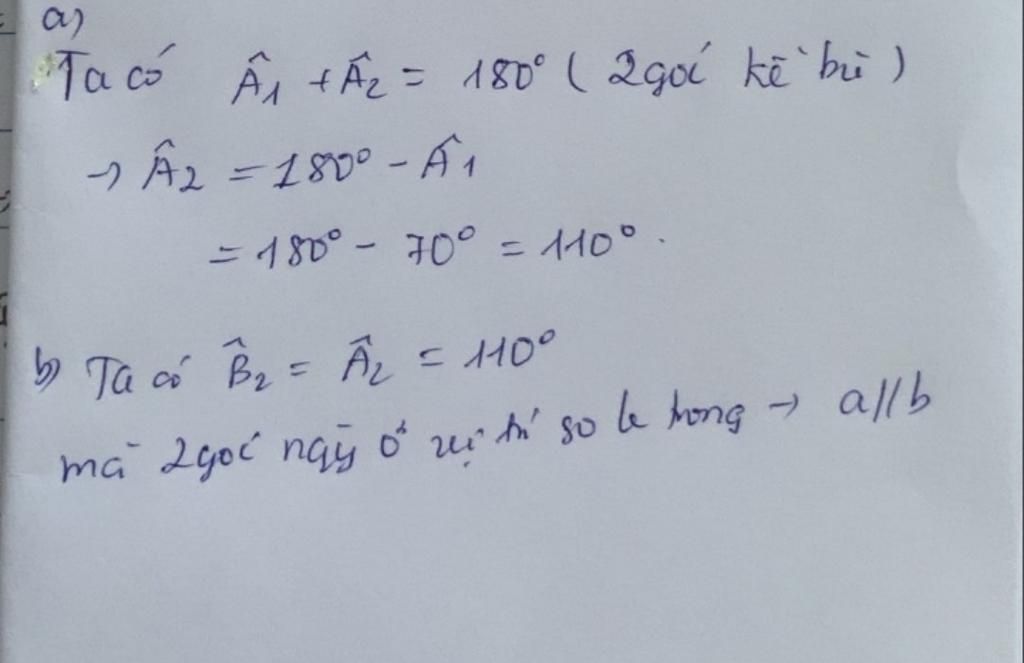 a)
Ta có Â1 + Â2 = 180° ( 2 goí kề bù )
→ Â2 = 180° - Â1
= 180° - 70° = 110° .
b) Ta có B̂2 = Â2 = 110°
mà 2 góc này ở vị trí so le trong → a//b